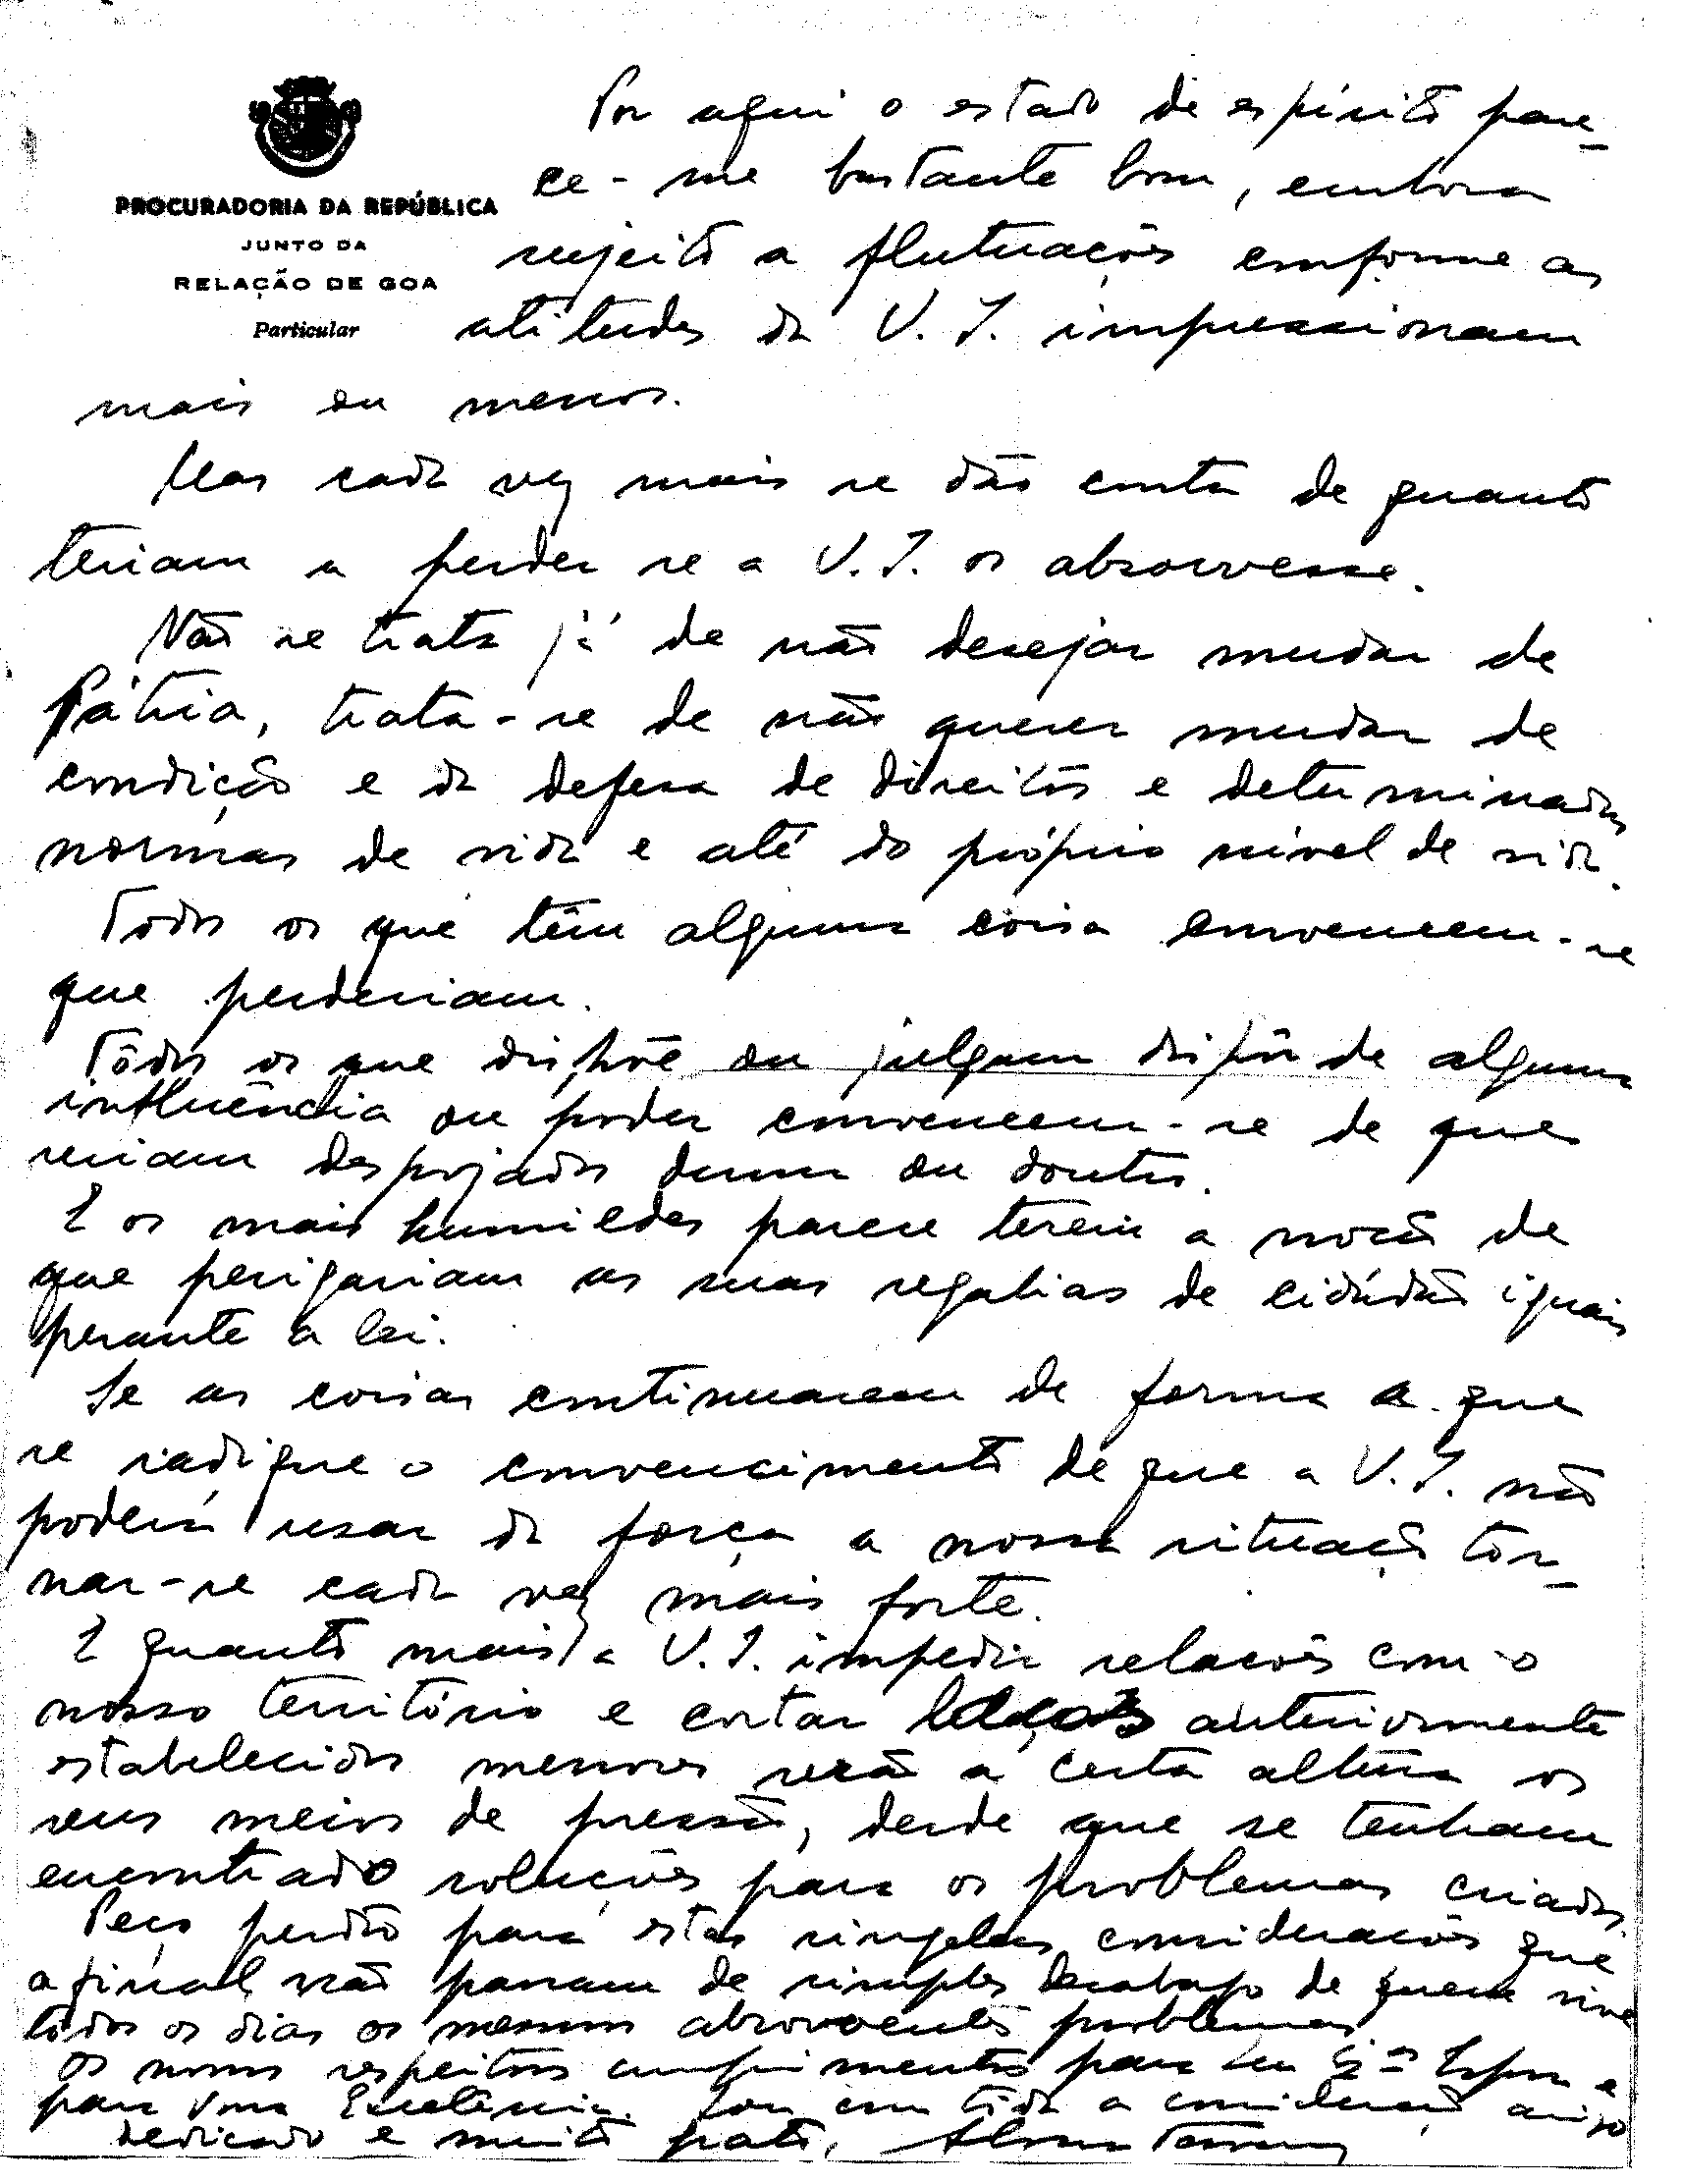 PROCURADORIA DA REPÚBLICA
JUNTO DA
RELAÇÃO DE GOA
Particular
Por aqui o estado de espírito pare-
ce-me bastante bom, embora
sujeito a flutuações conforme as
atitudes da V. I. impressionam
mais ou menos.
Mas cada vez mais se dão conta de quanto
teriam a perder se a V. I. os absorvesse.
Não se trata já de não desejar mudar de
Pátria, trata-se de não querer mudar de
condição e da defesa de direitos e determinadas
normas de vida e até do próprio nível de vida.
Todos os que têm alguma coisa convencem-se
que perderiam.
Tôdos os que dispõe ou julgam dispôr de alguma
influência ou poder convencem-se de que
seriam despojados duma ou doutro.
E os mais humildes parece terem a noção de
que perigariam as suas regalias de cidadão iguais
perante a lei.
Se as coisas continuarem de forma a que
se radique o convencimento de que a V. I. não
poderá usar da força a nossa situação tor-
nar-se cada vez mais forte.
E quanto mais a V. I. impedir relações com o
nosso território e cortar anteriormente
estabelecidos menores serão a certa altura os
seus meios de pressão, desde que se tenham
encontrado soluções para os problemas criados.
Peço perdão para estas singelas considerações que
afinal não passam de simples desabafo de quem vive
todos os dias os mesmos absorventes problemas.
Os nossos respeitosos cumprimentos para Sua Exª Esposa e
para Vossa Excelência. Sou com tôda a consideração amigo
dedicado e muito grato,